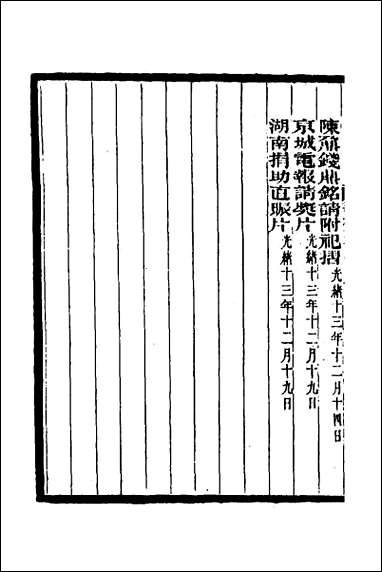 陳鼐錢鼎銘請附祀摺光緒十三年十二月十四日
京城電報請奬片光緒十三年十二月十九日
湖南捐助直賑片光緒十三年十二月十九日